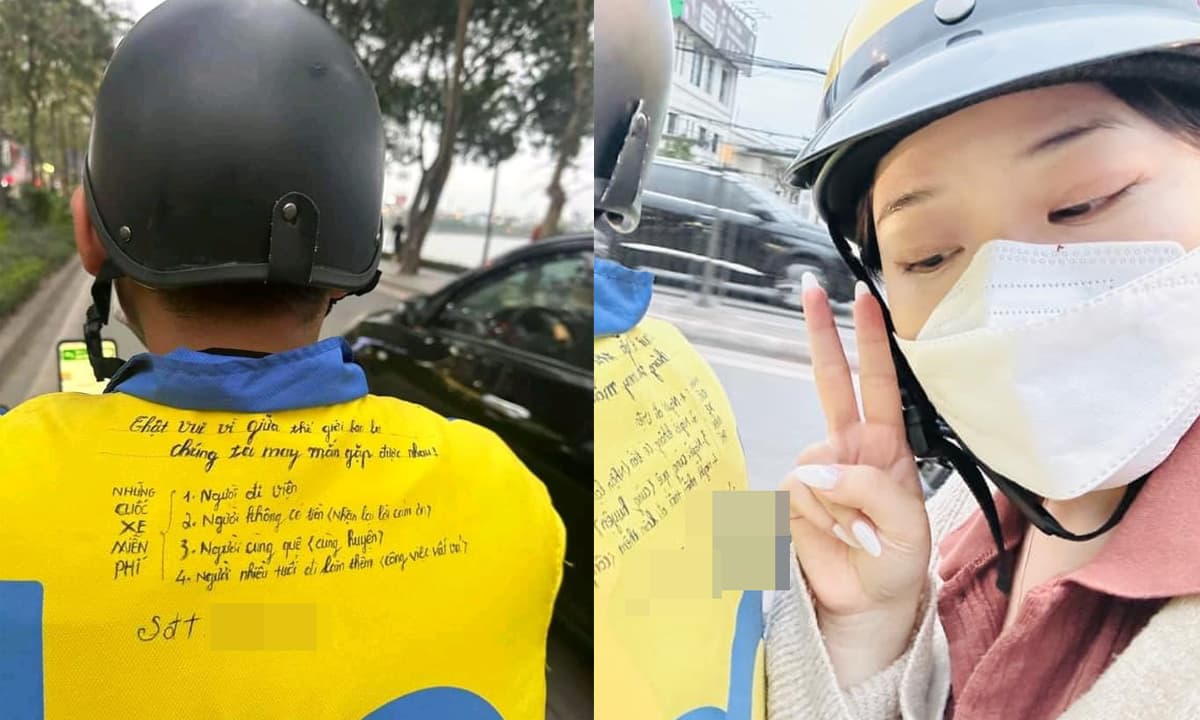 Thật vui vì giữa thế giới bao la
chúng ta may mắn gặp được nhau!
NHỮNG
CUỐC
XE
MIỄN
PHÍ
1. Người đi viện
2. Người không có tiền (Nhận lại lời cảm ơn)
3. Người cùng quê (cùng huyện)
4. Người nhiều tuổi đi làm thêm (công việc vất vả)
Sđt